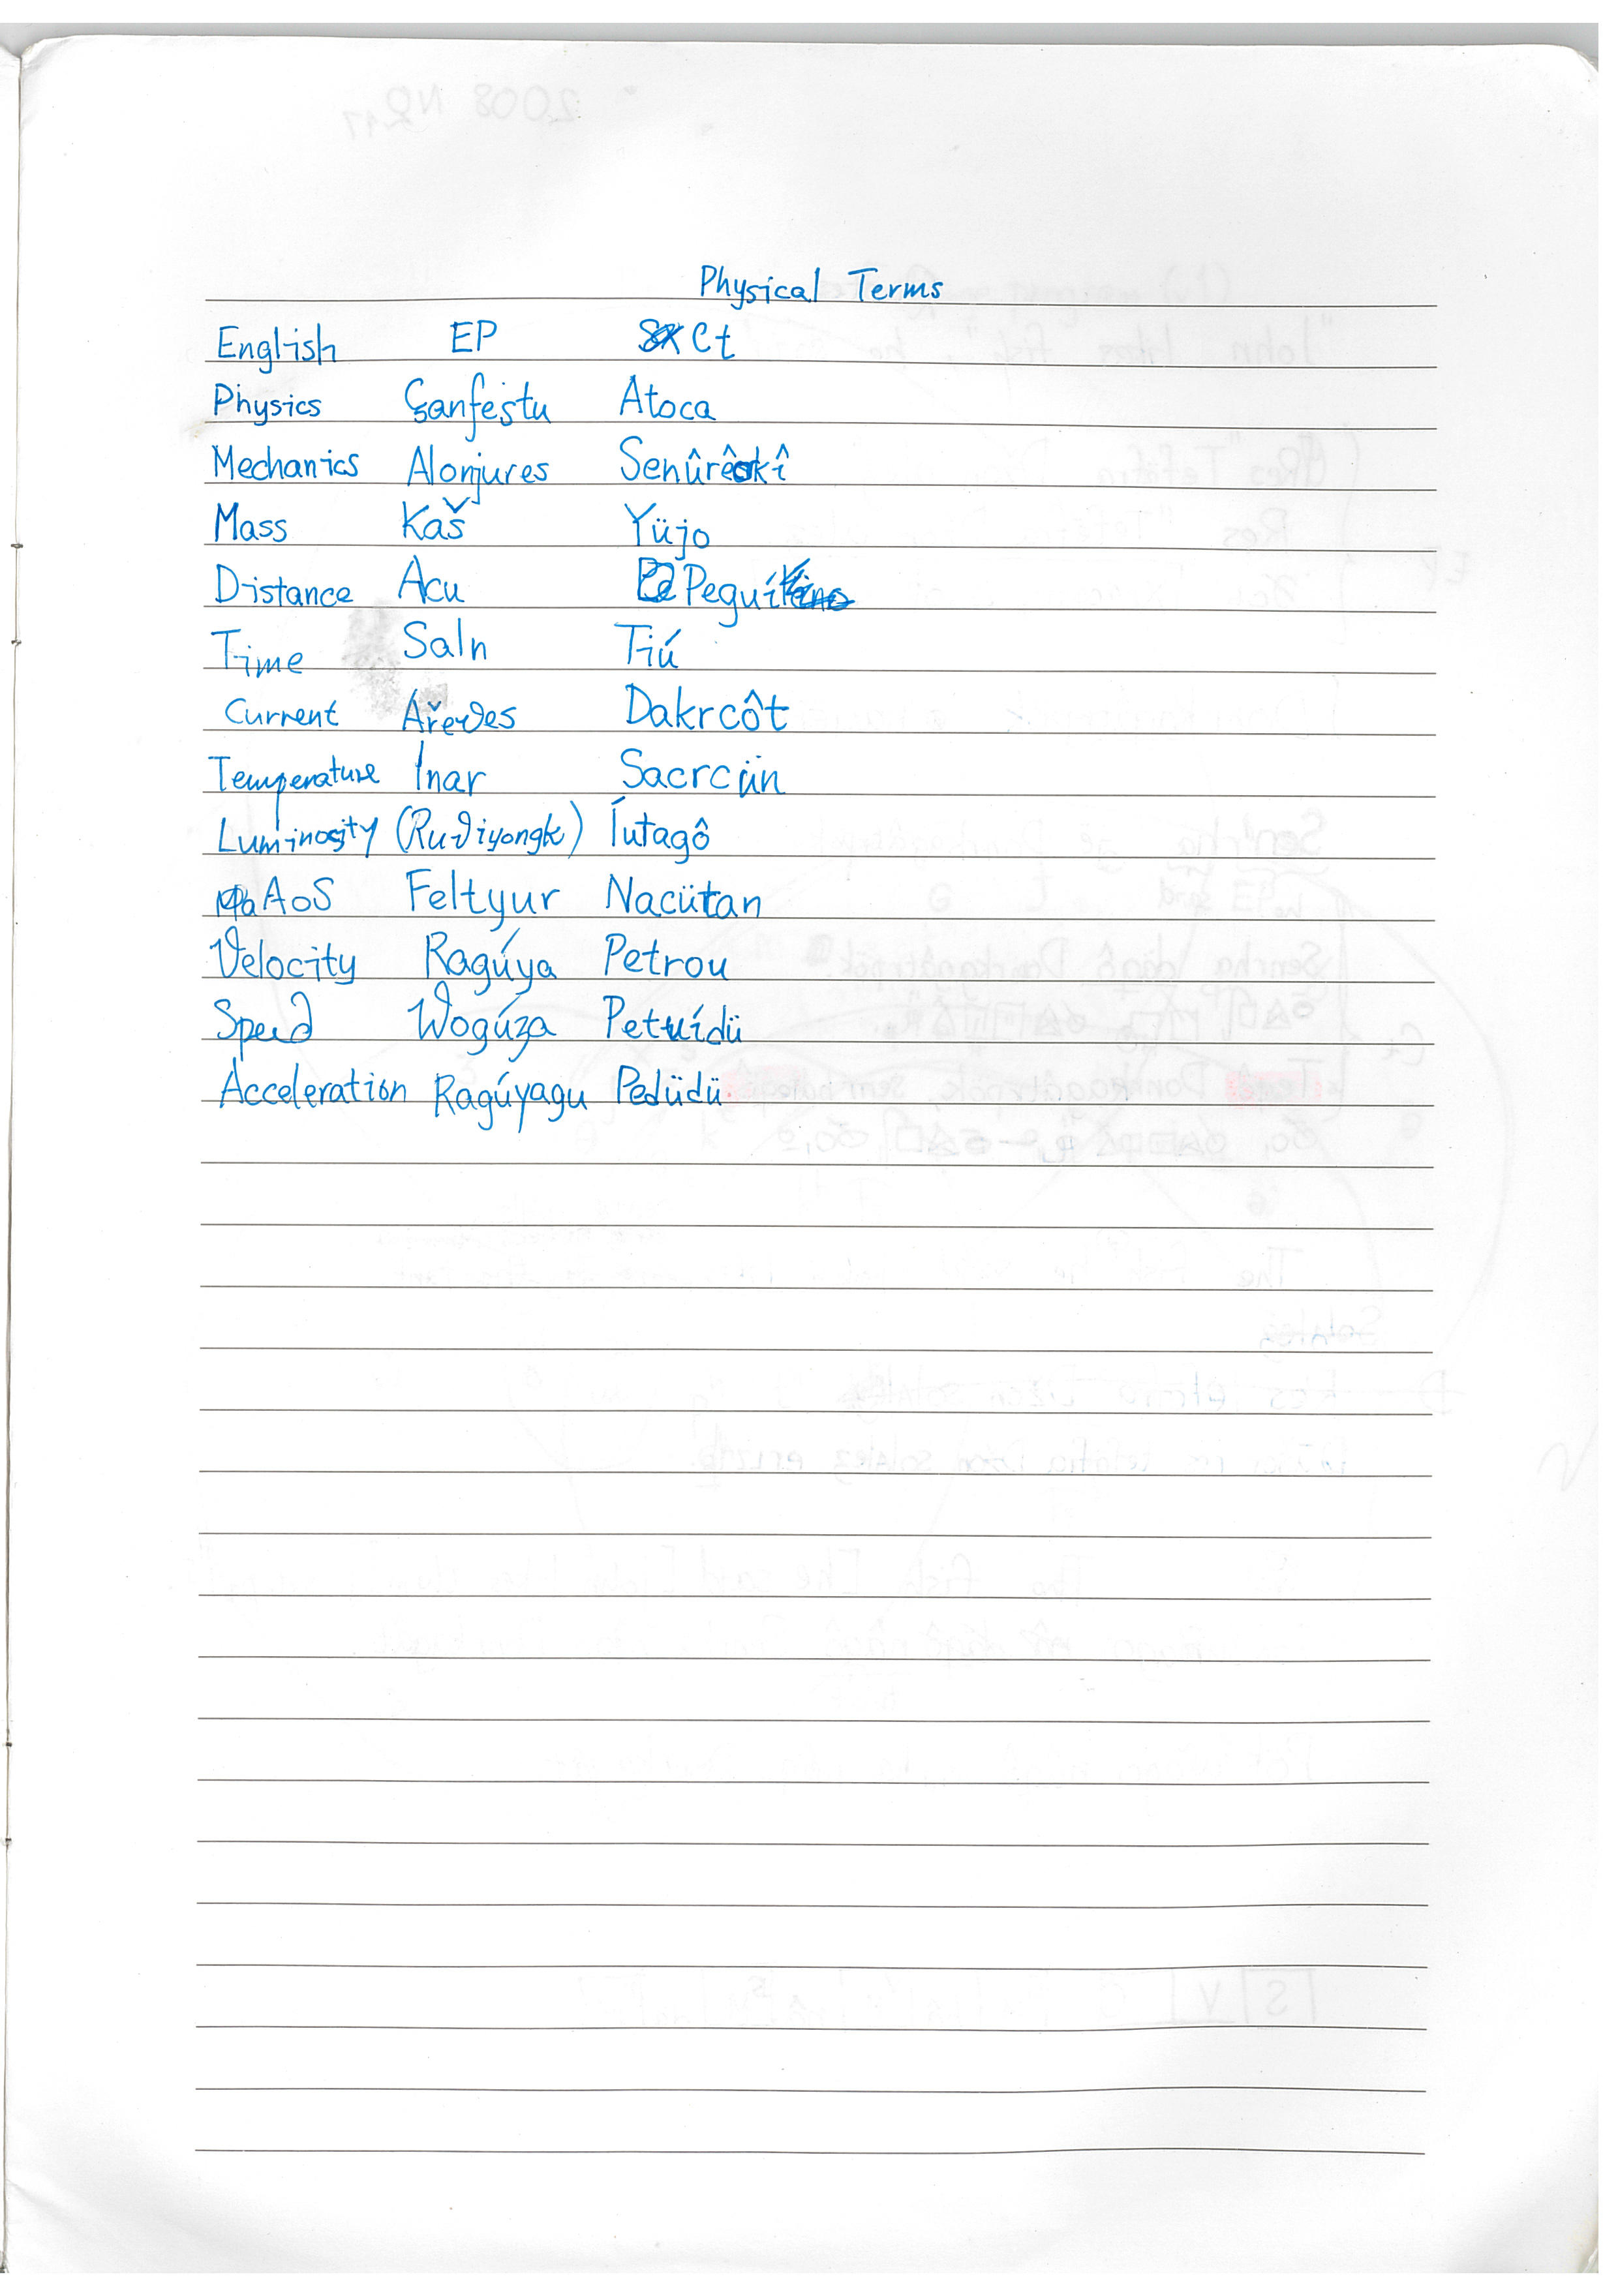 Physical Terms
English EP Ct
Physics Şanfeştu Atoca
Mechanics Alonjures Senûrêkî
Mass Kaš Yüjo
Distance Acu Peguí
Time Saln Tiú
Current Dakrcôt
Temperature Inar Sacrcün
Luminosity Íutagô
AoS Feltyur Nacütan
Velocity Ragúya Petrou
Speed Wogúza Petuídü
Acceleration Ragúyagu Pedüdü